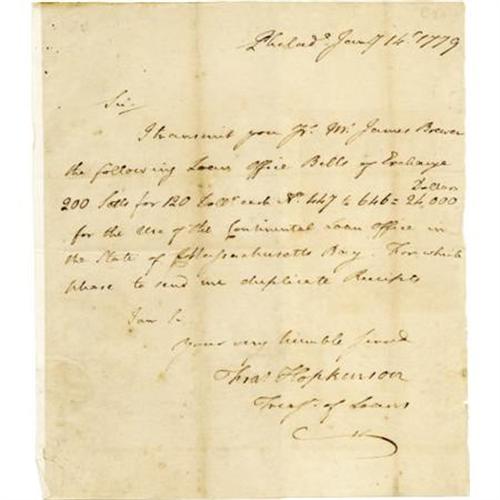 Philad.ª Jan.y 14.th 1779
Sir
I transmit you Pr. Mr. James Brewer
the following Loan Office Bills of Exchange
Dollars
200 Setts for 120 Doll.s each No. 447 to 646 = 24,000
for the Use of the Continental Loan Office in
the State of Massachusetts Bay. For which
please to send me duplicate Receipts
I am Sr.
your very humble servt
Fras. Hopkinson
Treasr. of Loans